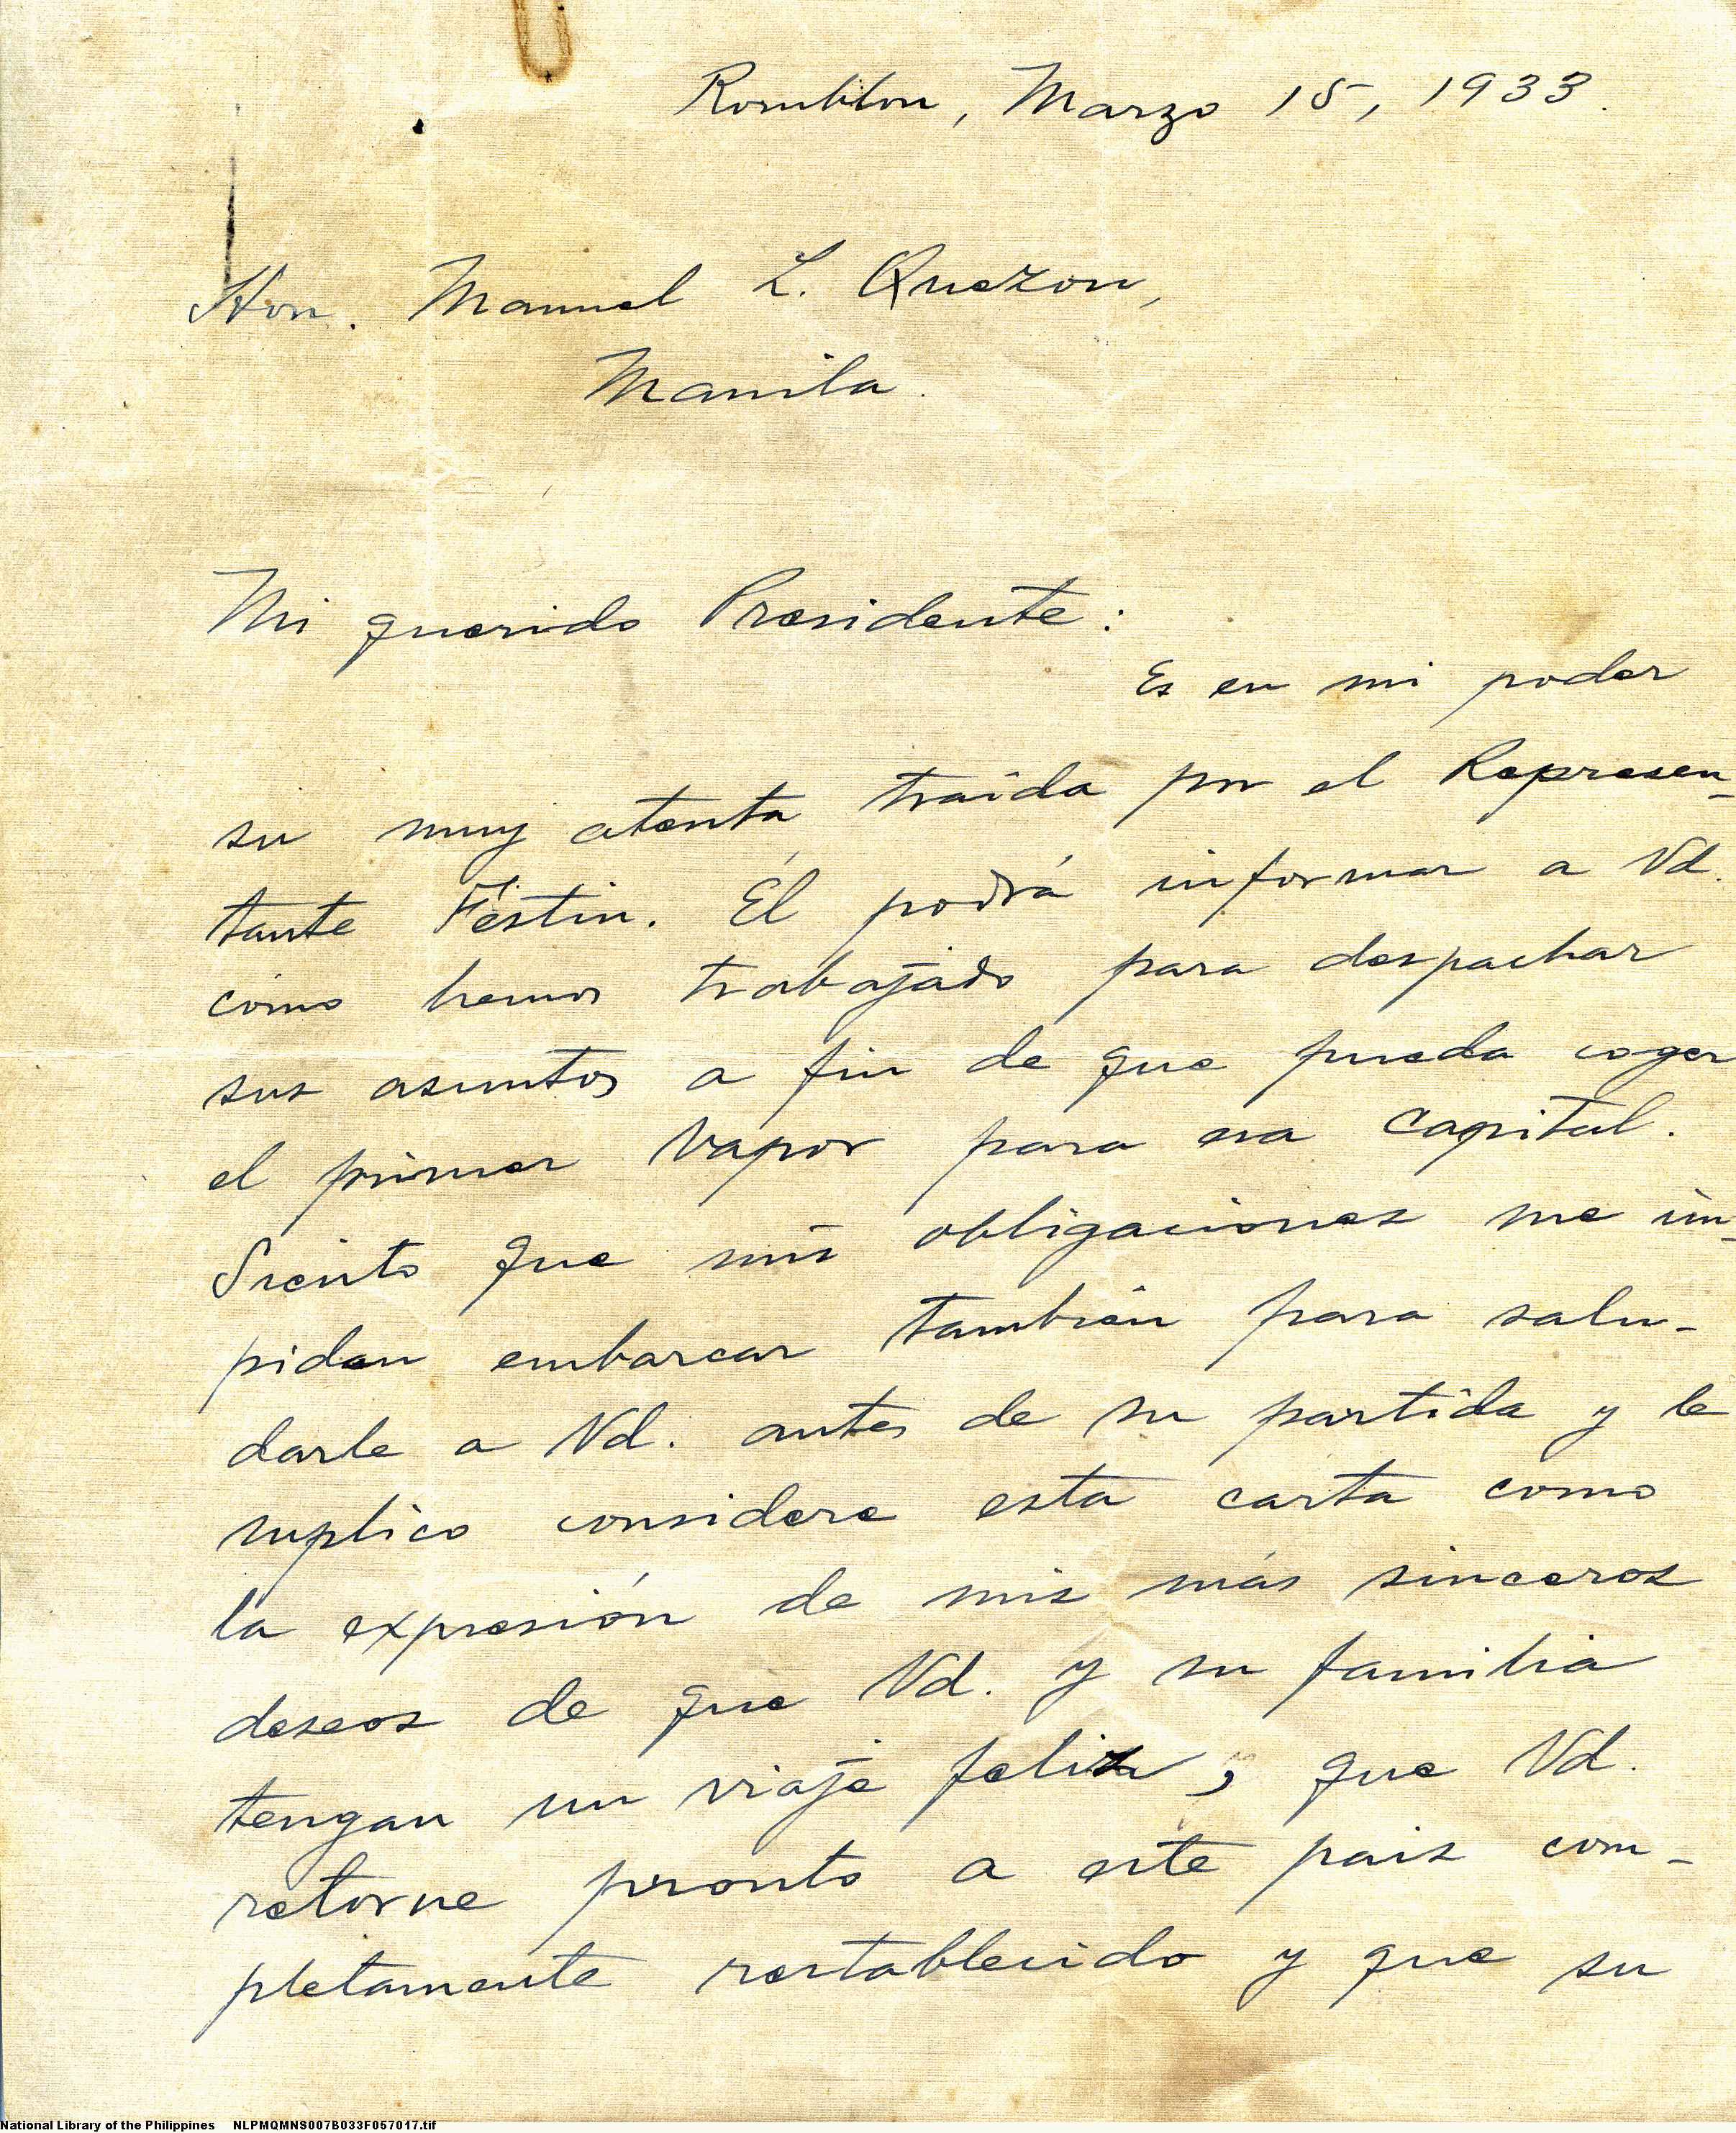 Romblon, Marzo 15, 1933.
Hon. Manuel L. Quezon,
Manila.
Mi querido Presidente:
Es en mi poder
su muy atenta traida por el Represen-
tante Festin. Él podrá informar a Vd.
cómo hemos trabajado para despachar
sus asuntos a fin de que pueda coger
el primer vapor para esa Capital.
Siento que mis obligaciones me im-
pidan embarcar también para salu-
darle a Vd. antes de su partida y le
suplico considere esta carta como
la expresión de mis más sinceros
deseos de que Vd. y su familia
tengan un viaje feliz, que Vd.
retorne pronto a este pais com-
pletamente restablecido y que su
National Library of the Philippines NLPMQMNS007B033F057017.tif